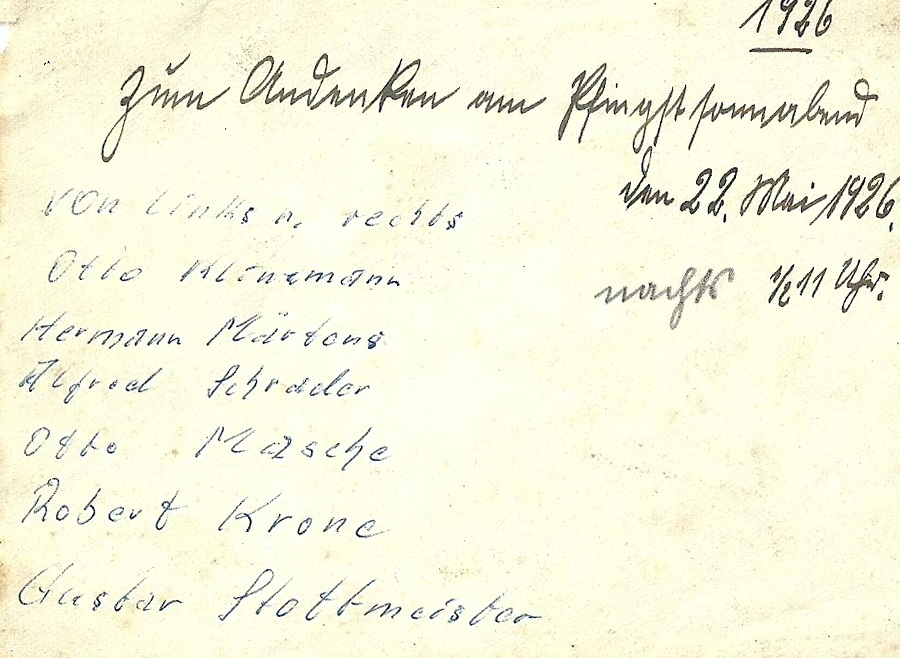 1926
Zum Andenken am Pfingstsonnabend
den 22. Mai 1926.
nachts 1/2 11 Uhr.
von links n. rechts
Otto Klinzmann
Hermann Märtens
Alfred Schrader
Otto Masche
Robert Krone
Gustav Stottmeister